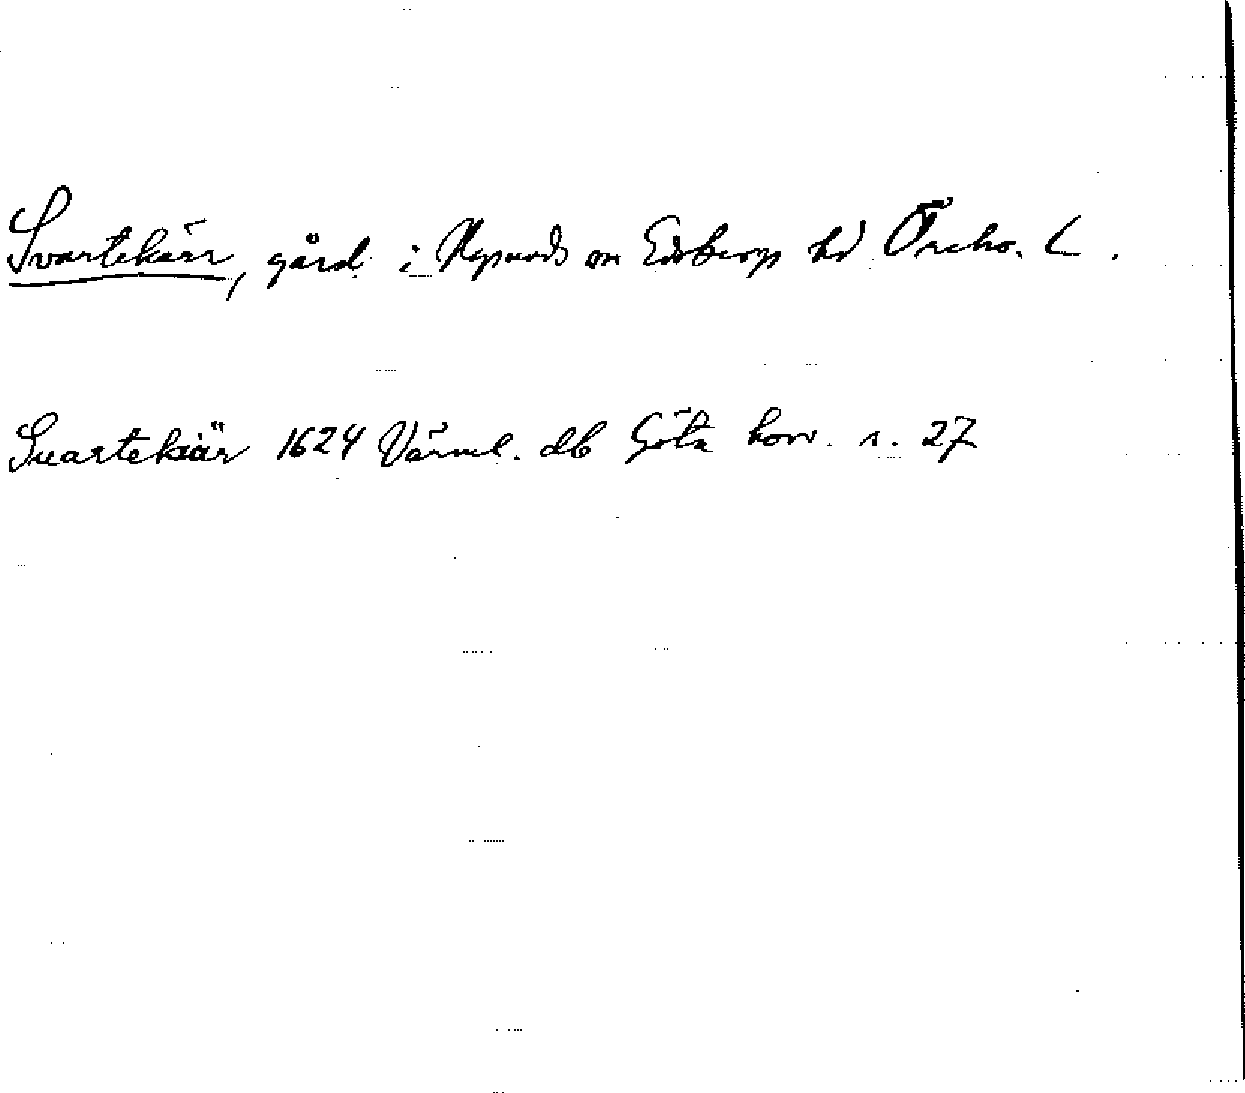 Svartekärr, gård i Nysunds sn Edsbergs hd Örebro L.
Suartekiär 1624 Värml. db Göta hovr. s. 27